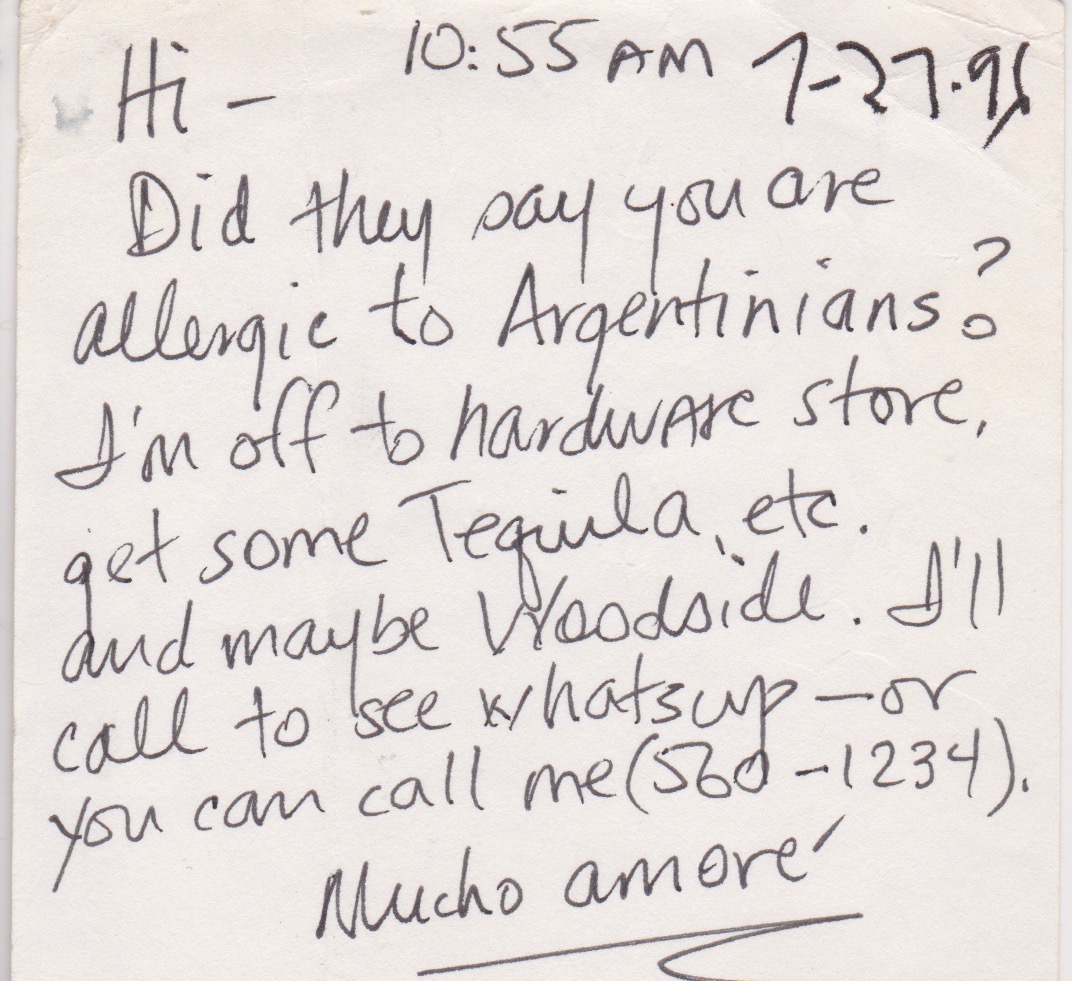 Hi — 10:55 AM 7-27.98
Did they say you are
allergic to Argentinians?
I'm off to hardware store,
get some Tequila, etc.
and maybe Woodside. I'll
call to see whatsup — or
you can call me (560-1234).
Mucho amoré